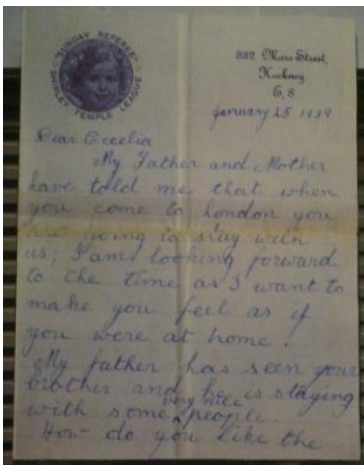 "SUNDAY REFEREE"
SHIRLEY TEMPLE LEAGUE
332 Mare Street,
Hackney
E, 8
January 25 1939
Dear Cecelia
My Father and Mother
have told me that when
you come to London you
are going to stay with
us; I am looking forward
to the time as I want to
make you feel as if
you were at home.
My father has seen your
brother and he is staying
with some very nice people.
How do you like the